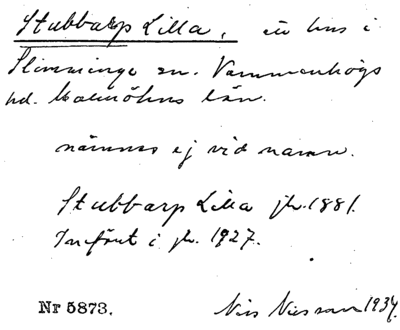 Stubbarp Lilla, ett hus i
Slimminge sn. Vemmenhögs
hd. Malmöhus län.
nämnes ej vid namn.
Stubbarp Lilla jb. 1881.
Infört i jb. 1927.
Nr 5873. Nils Nilsson 1934.